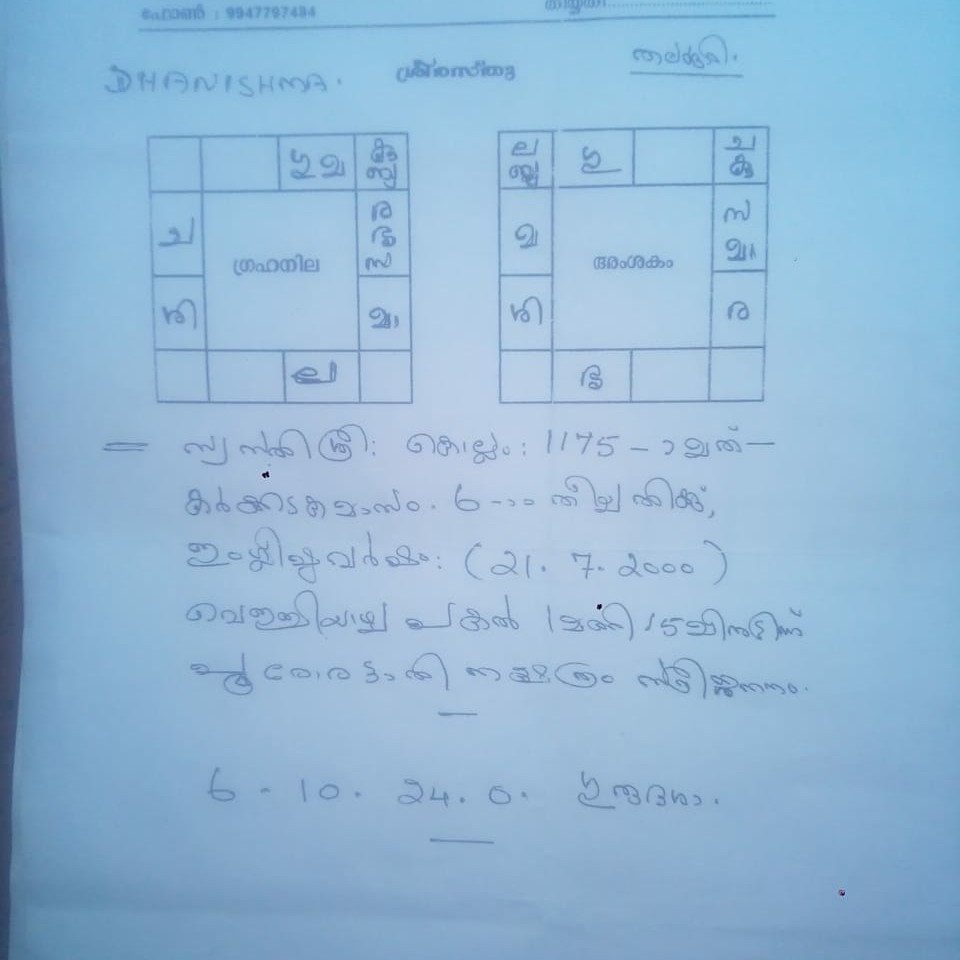 ഫോൺ : 9947797484 തിയ്യതി
DHANISHMA. ശ്രീരസ്തു
ഗു മ കു ബു
ച ഗ്രഹനില ര ശു സ
ശി മാ
ല
ല ബു ഗു ച കു
മ അംശകം സ മാ
ശി ര
ശു
സ്വസ്തിശ്രീ: കൊല്ലം: 1175 - ാമത്
കർക്കിടകമാസം. 6-ാം തീയ്യതിക്ക്,
ഇംഗ്ലീഷുവർഷം: (21. 7. 2000)
വെള്ളിയാഴ്ച പകൽ 1മണി 15മിനുട്ടിന്ന്
പൂരോരട്ടാതി നക്ഷത്രം സ്ത്രീജനനം.
6 - 10. 24. 0. ഗുരുദശാ.